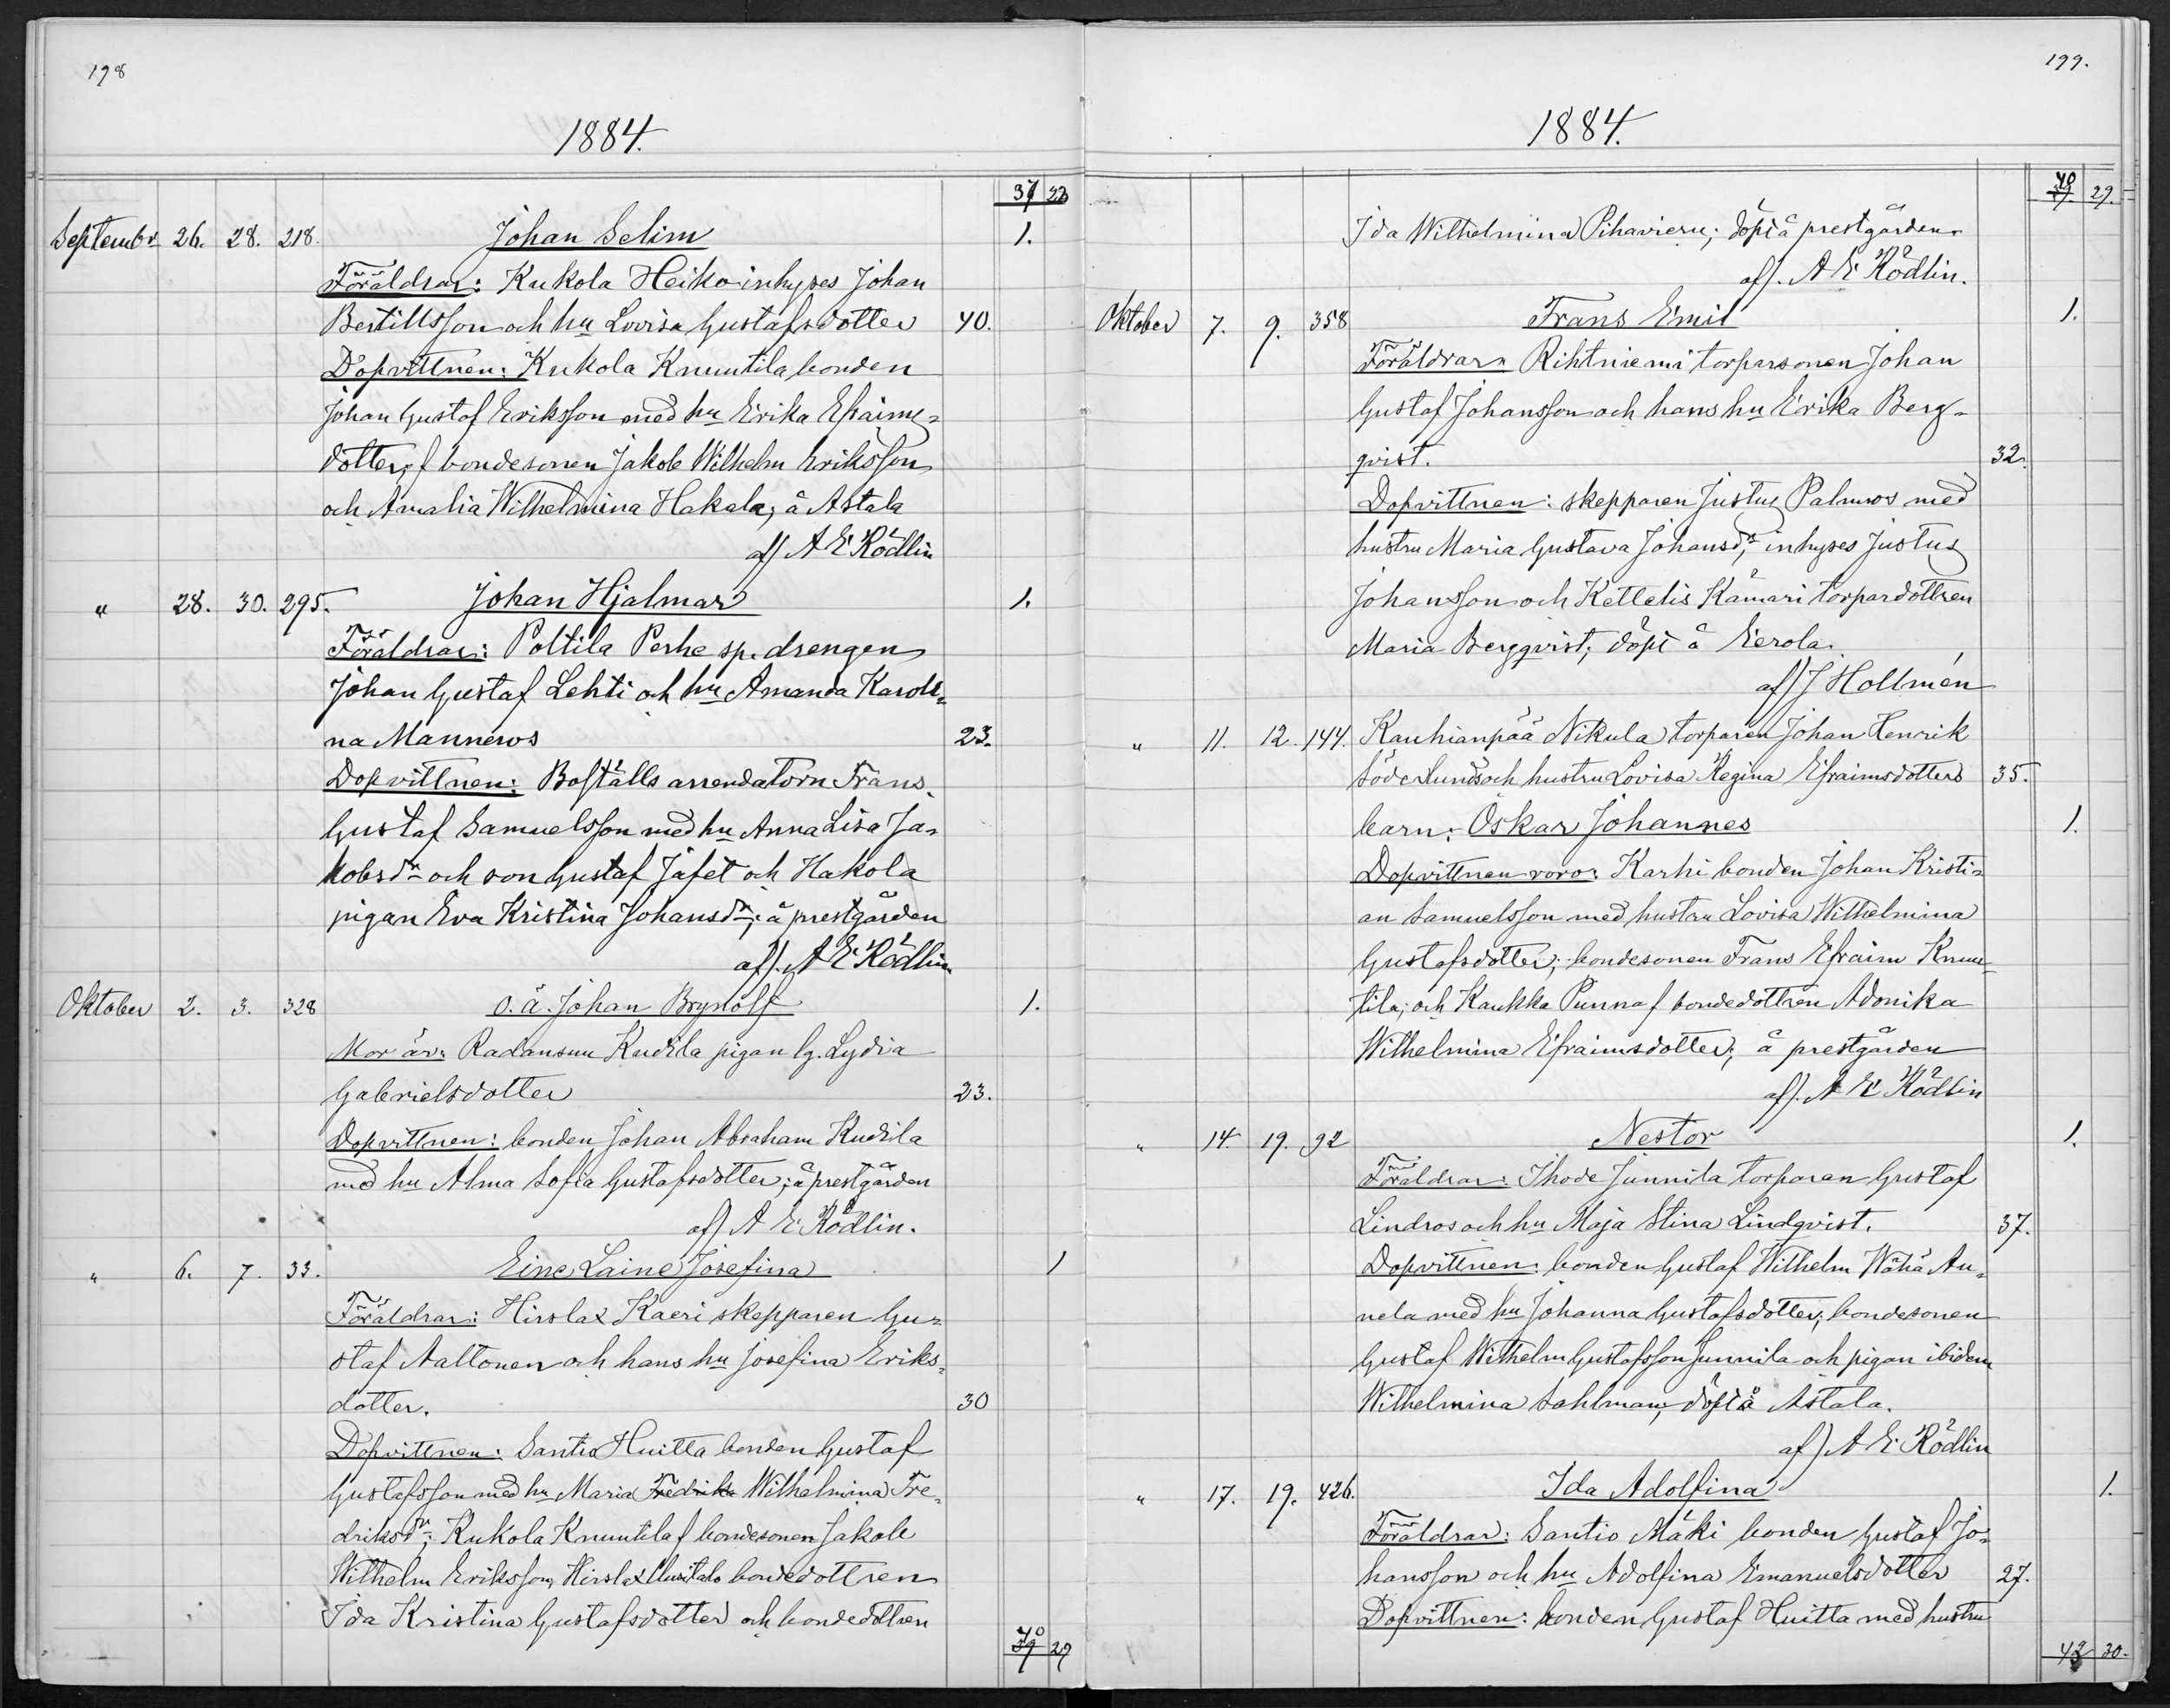 198
1884.
37 23
Septembr 26. 28. 218. Johan Selim 1.
Föräldrar: Kukola Heiko inhyses Johan
Bertillsson och hu Lovisa Gustafsdotter 40.
Dopvittnen: Kukola Knuutila bonden
Johan Gustaf Eriksson med hu Erika Efraims-
dotter, f bondesonen Jakob Wilhelm Eriksson
och Amalia Wilhelmina Hakala; å Astala
af/ A E Rödlin
" 28. 30. 295. Johan Hjalmar 1.
Föräldrar: Poltila Perhe sp. drengen
Johan Gustaf Lehti och hu Amanda Karoli-
na Manneros 23.
Dopvittnen: Boställs arrendatorn Frans
Gustaf Samuelsson med hu Anna Lisa Ja-
kobsdr och son Gustaf Jafet och Hakola
pigan Eva Kristina Johansdr; å prestgården
af). A E Rödlin
Oktober 2. 3. 328 o. ä. Johan Brynolf 1.
Mor är: Radansuu Kudila pigan lg. Lydia
Gabrielsdotter 23.
Dopvittnen: bonden Johan Abraham Kudila
med hu Alma Sofia Gustafsdotter; å prestgården
af) A E Rödlin.
" 6. 7. 33. Eine Laine Josefina 1
Föräldrar: Hirslax Kaeri skepparen Gu-
staf Aaltonen och hans hu Josefina Eriks-
dotter. 30
Dopvittnen: Santio Huitta bonden Gustaf
Gustafsson med hu Maria Fredrika Wilhelmina Fre-
driksdr; Kukola Knuutila f bondesonen Jakob
Wilhelm Eriksson, Hirslax Uusitalo bondedottren
Ida Kristina Gustafsdotter och bondedottren
40
39 29
199.
1884.
40
39. 29.
Ida Wilhelmina Pihavieru; döpt å prestgården
af). A E Rödlin.
Oktober 7. 9. 358 Frans Emil 1.
Föräldrar: Rihtniemi torparsonen Johan
Gustaf Johansson och hans hu Erika Berg-
qvist. 32.
Dopvittnen: skepparen Justus Palmros med
hustru Maria Gustava Johansdr, inhyses Justus
Johansson och Kettelis Kämäri torpardottren
Maria Bergqvist; döpt å Eerola.
af) J Hollmén
" 11. 12. 144. Kauhianpää Nikula torparen Johan Henrik
Söderlunds och hustru Lovisa Regina Efraimsdotters 35.
barn: Oskar Johannes 1.
Dopvittnen voro: Karhi bonden Johan Kristi-
an Samuelsson med hustru Lovisa Wilhelmina
Gustafsdotter; bondesonen Frans Efraim Knuu-
tila; och Kaukka Punna f bondedottren Adonika
Wilhelmina Efraimsdotter; å prestgården
af). A E Rödlin
" 14. 19. 92 Nestor 1.
Föräldrar: Ihode Junnila torparen Gustaf
Lindros och hu Maja Stina Lindqvist. 37.
Dopvittnen: bonden Gustaf Wilhelm Wähä An-
nela med hu Johanna Gustafsdotter, bondesonen
Gustaf Wilhelm Gustafsson Junnila och pigan ibidem
Wilhelmina Sahlman; döpt å Astala.
af) A E Rödlin
" 17. 19. 426. Ida Adolfina 1.
Föräldrar: Santio Mäki bonden Gustaf Jo-
hansson och hu Adolfina Emanuelsdotter 27.
Dopvittnen: bonden Gustaf Huitta med hustru
43 30.